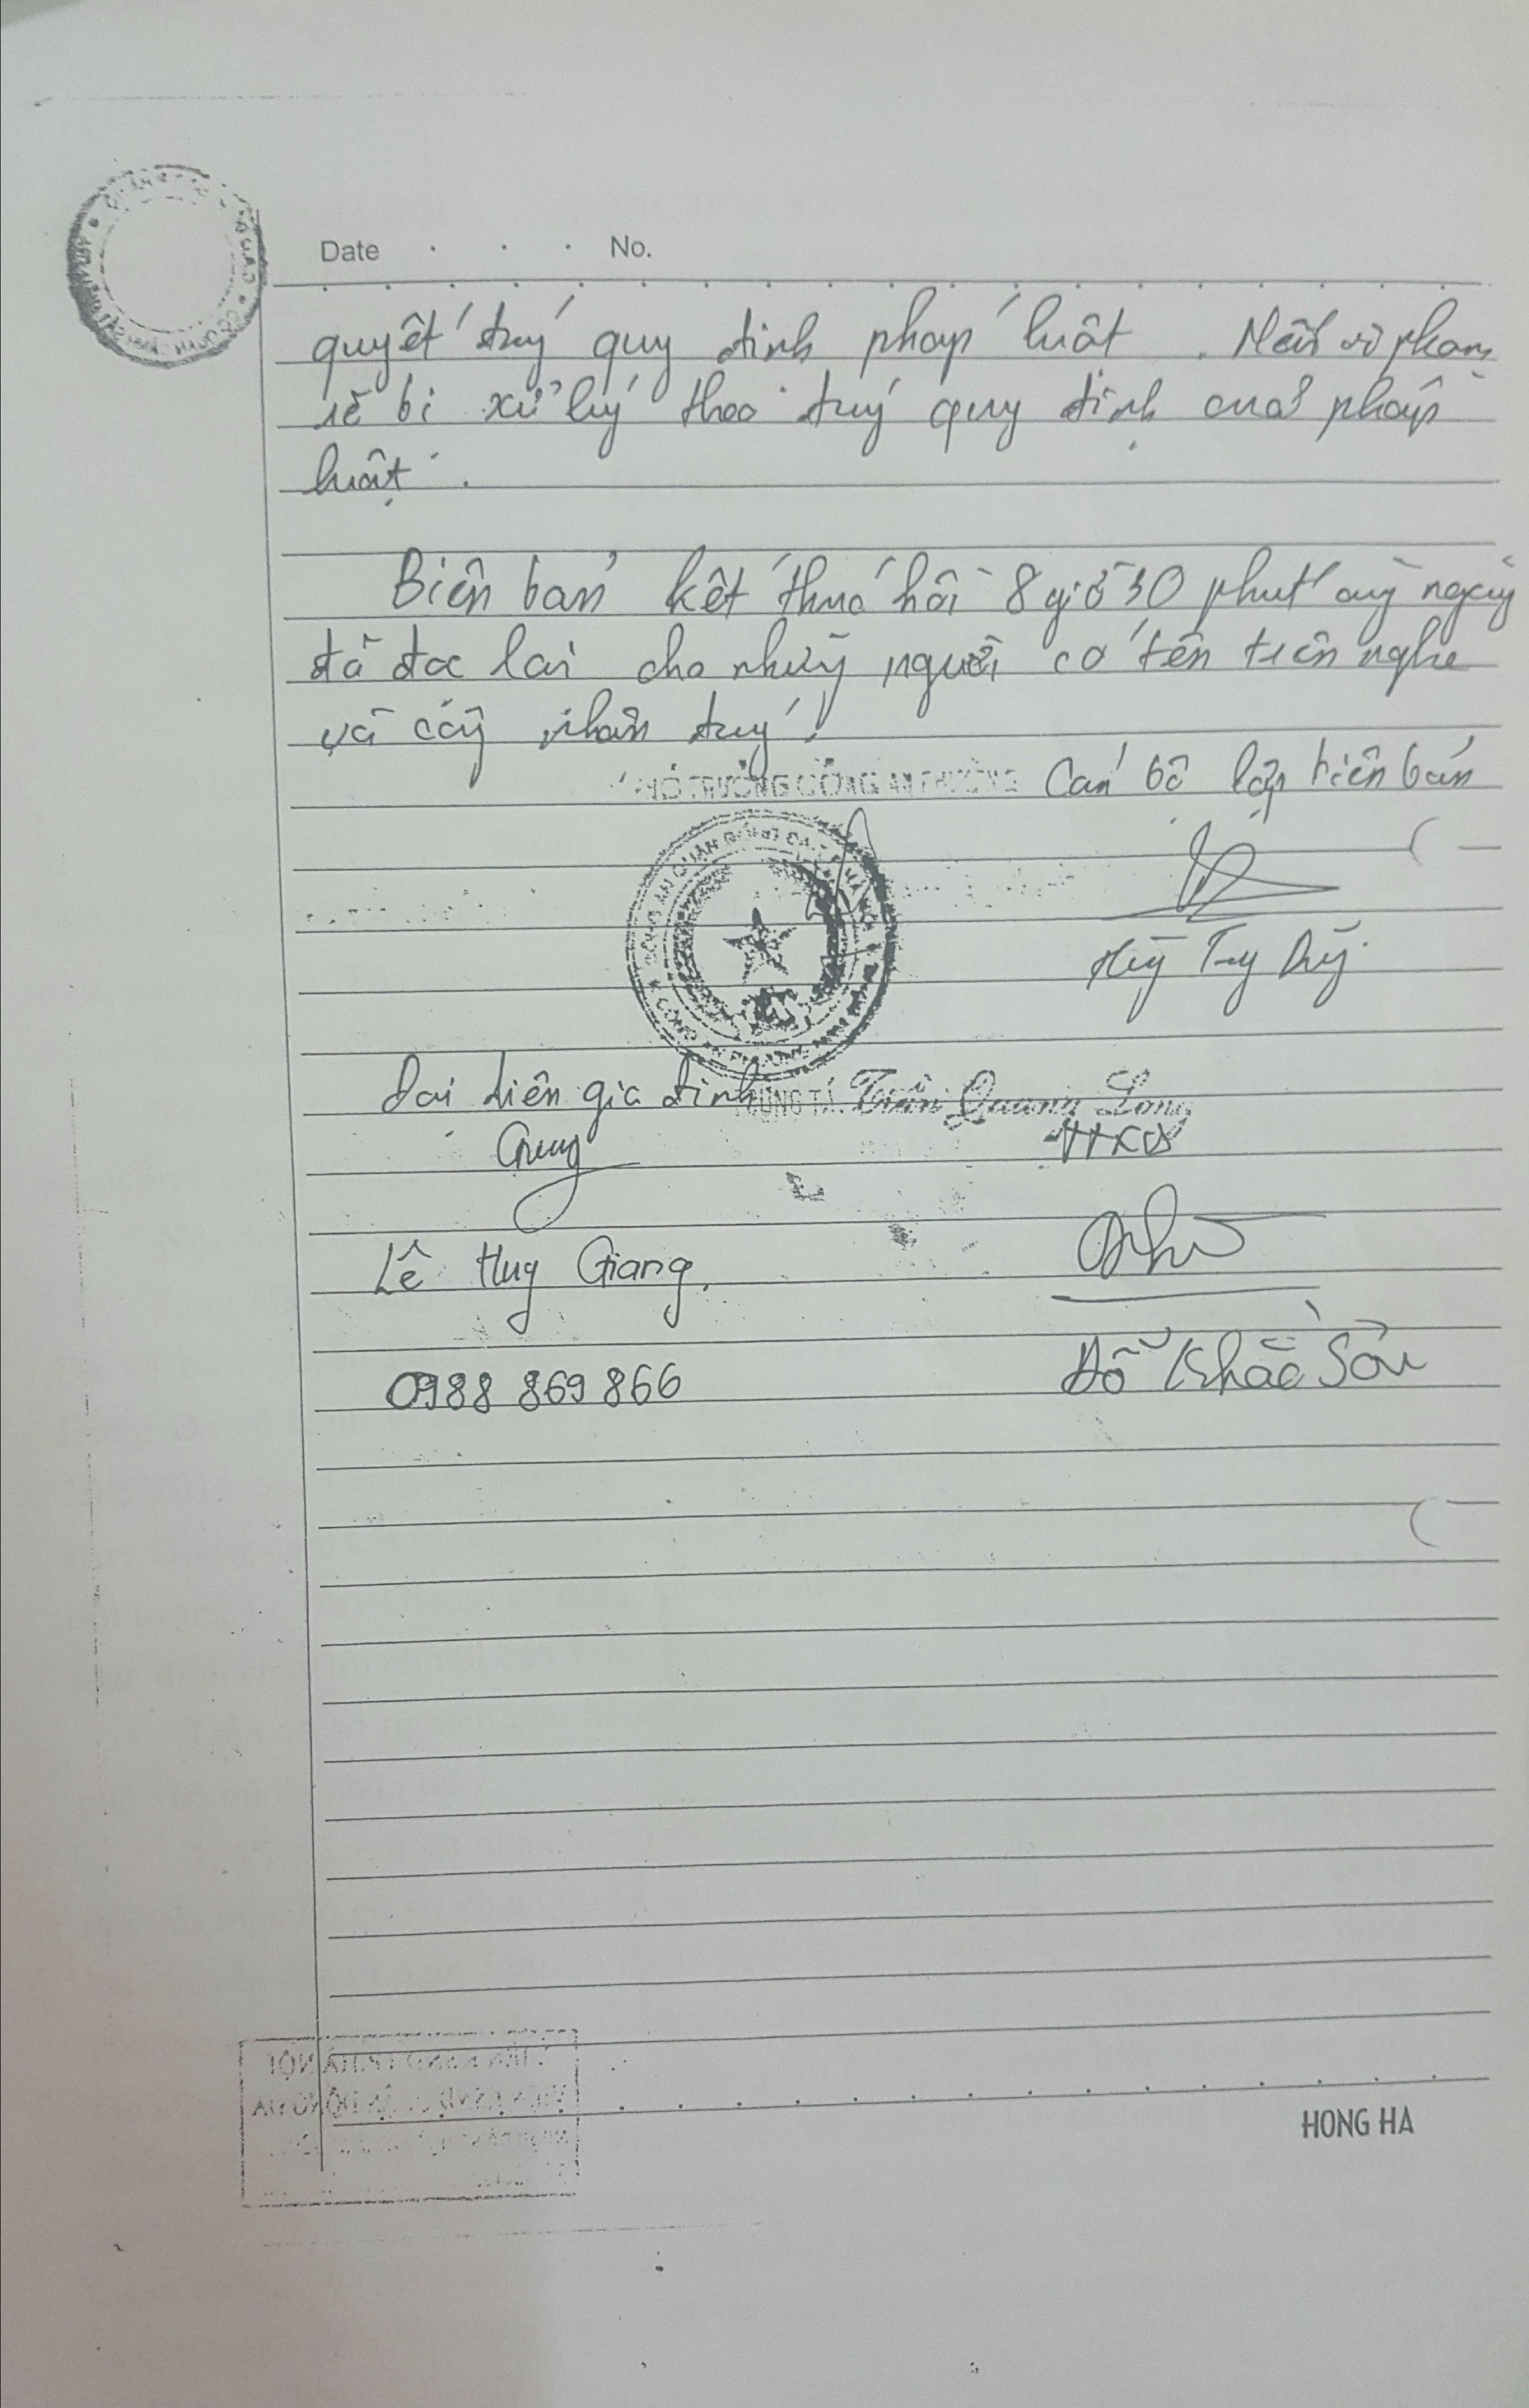 Date . . . No.
quyết đúng quy định pháp luật. Nếu vi phạm
sẽ bị xử lý theo đúng quy định của pháp
luật.
Biên bản kết thúc hồi 8 giờ 30 phút cùng ngày
đã đọc lại cho những người có tên trên nghe
và công nhận đúng!
Cán bộ lập biên bản
Đại diện gia đình
TRUNG TÁ. Trần Quang Long
Lê Huy Giang.
Đỗ Khắc Sơn
0988 869 866
HONG HA